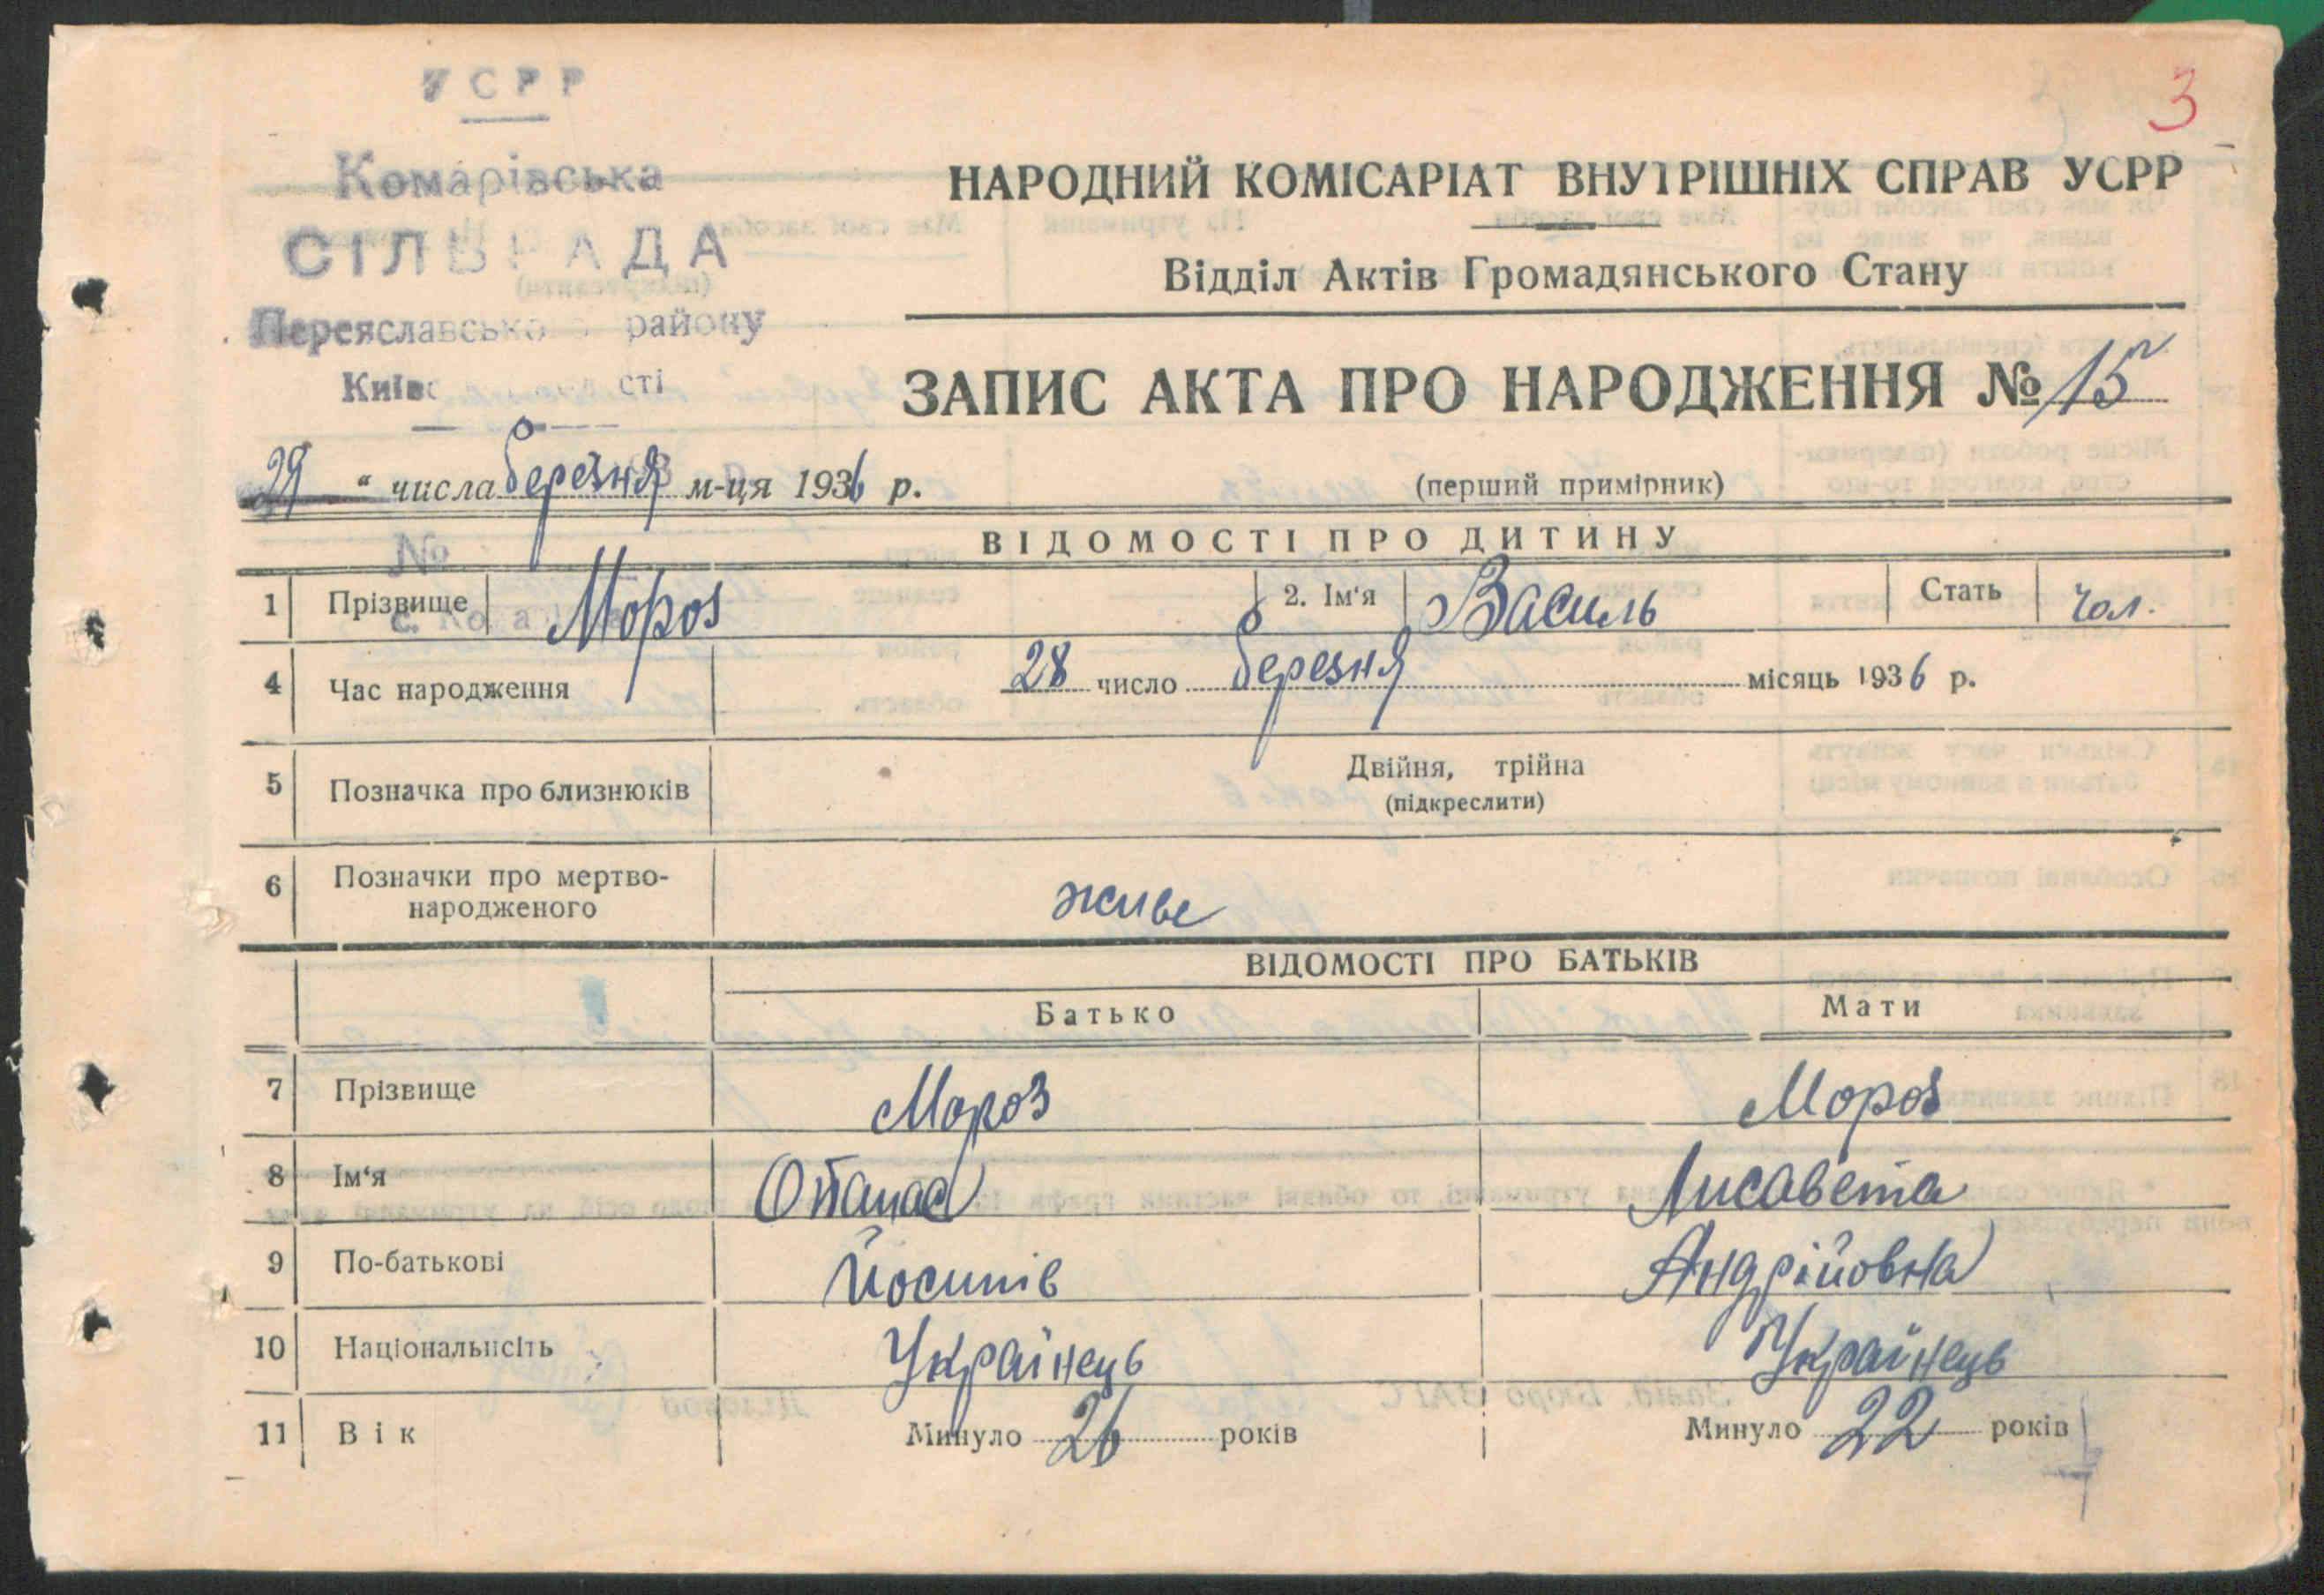 УСРР
3
Комарівська
СІЛЬРАДА
Переяславського району
НАРОДНИЙ КОМІСАРІАТ ВНУТРІШНІХ СПРАВ УСРР
Відділ Актів Громадянського Стану
ЗАПИС АКТА ПРО НАРОДЖЕННЯ № 15
29 " числа березня м-ця 1936 р.
(перший примірник)
№
ВІДОМОСТІ ПРО ДИТИНУ
1 Прізвище Мороз 2. Ім'я Василь Стать чол.
4 Час народження 28 число березня місяць 1936 р.
5 Позначка про близнюків Двійня, трійна
(підкреслити)
6 Позначки про мертво-
народженого живе
ВІДОМОСТІ ПРО БАТЬКІВ
Батько Мати
7 Прізвище Мороз Мороз
8 Ім'я Опанас Лисавета
9 По-батькові Йосипів Андрійовна
10 Національність Українець Українець
11 Вік Минуло 26 років Минуло 22 років